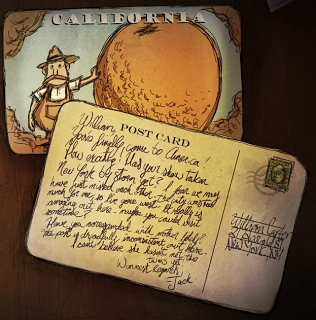 CALIFORNIA
POST CARD
William,
You've finally come to America.
How exciting! Has your show taken
New York by storm yet? I fear we may
have just missed each other. The city was too
much for me, so I've gone west. It really is
amazing out here - maybe you could visit
sometime?
Have you corresponded with mother lately?
The post is dreadfully inconsistent out here.
I can't believe she hasn't met the
twins yet.
Warmest Regards,
-Jack
William Carter